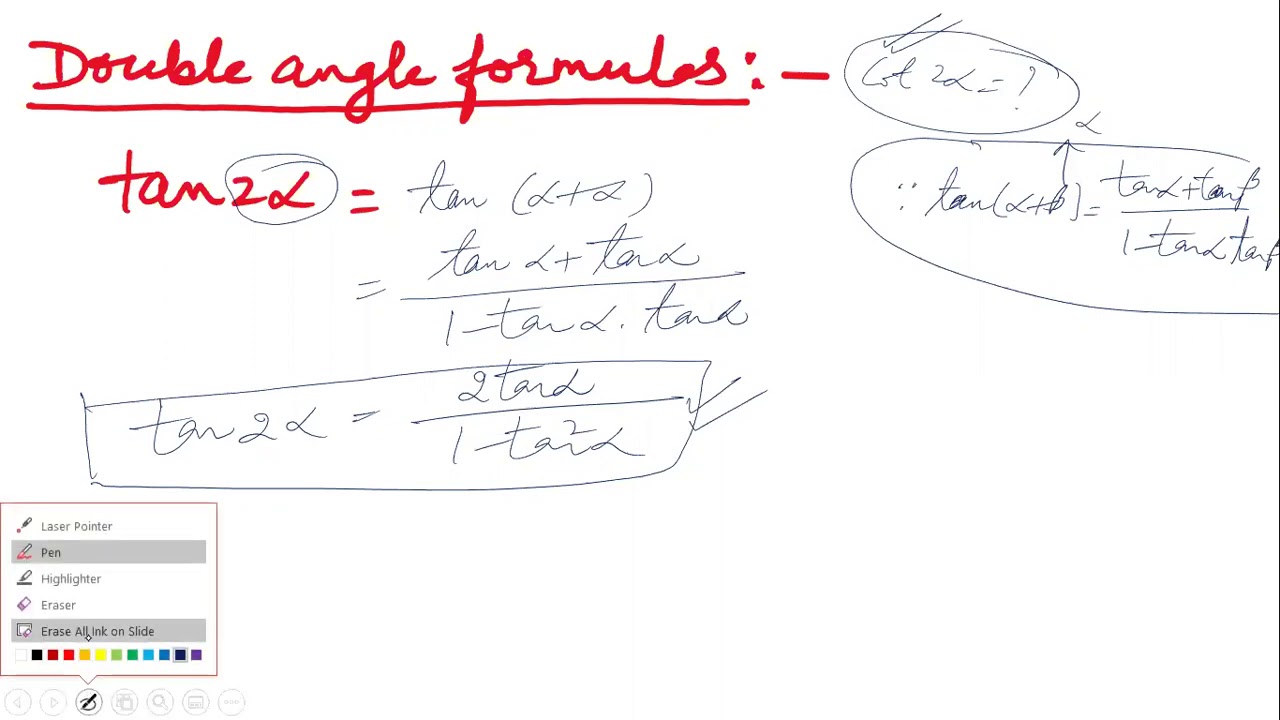 Double angle formulas:-
cot 2α = ?
tan 2α = tan (α+α)
= tan α + tan α / 1 - tan α . tan α
tan 2α = 2 tan α / 1 - tan²α
α
∵ tan(α+β) = tan α + tan β / 1 - tan α tan β
Laser Pointer
Pen
Highlighter
Eraser
Erase All Ink on Slide